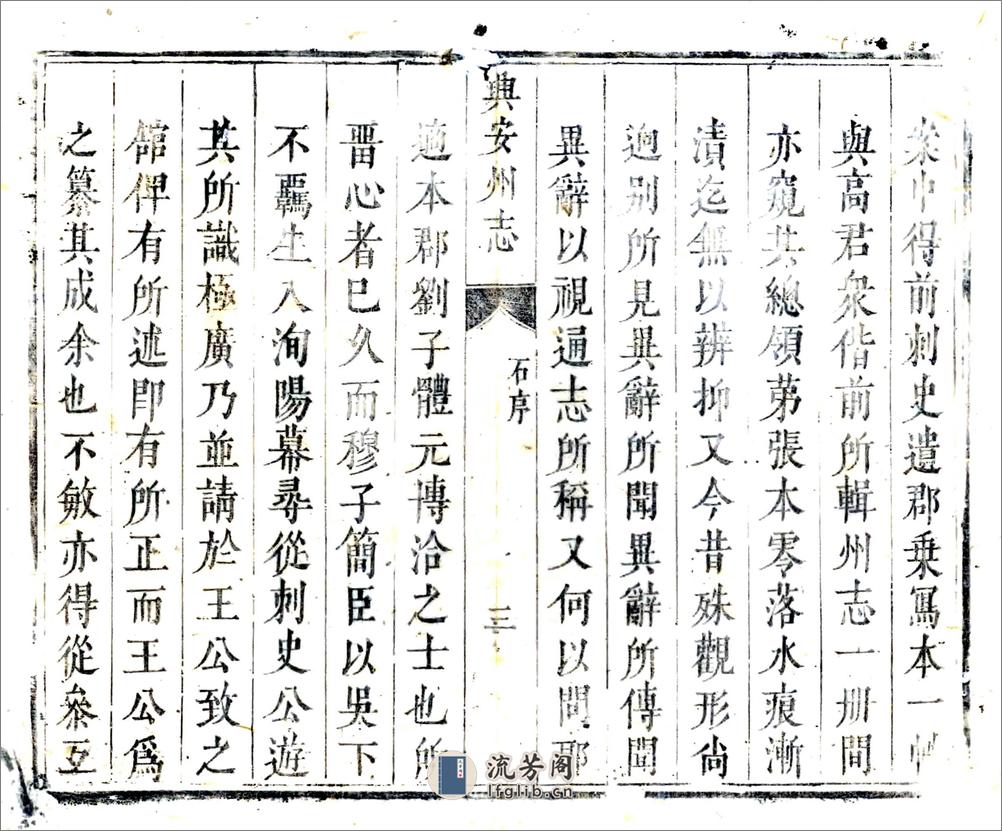 中得前刺史遺郡乗冩本一
與高君衆偕前所輯州志一册間
亦窺其總領苐張本零落水痕漸
漬迄無以辨抑又今昔殊觀形尙
逈别所見異辭所聞異辭所傳聞
異辭以視通志所稱又何以問
興安州志
石序
三
適本郡劉子體元博洽之士也所
畱心者已久而穆子簡臣以吳下
不羈生入洵陽幕尋從刺史公遊
其所識極廣乃並請於王公致之
舘俾有所述即有所正而王公爲
之纂其成余也不敏亦得從叅互
流芳阁
lfglib.cn